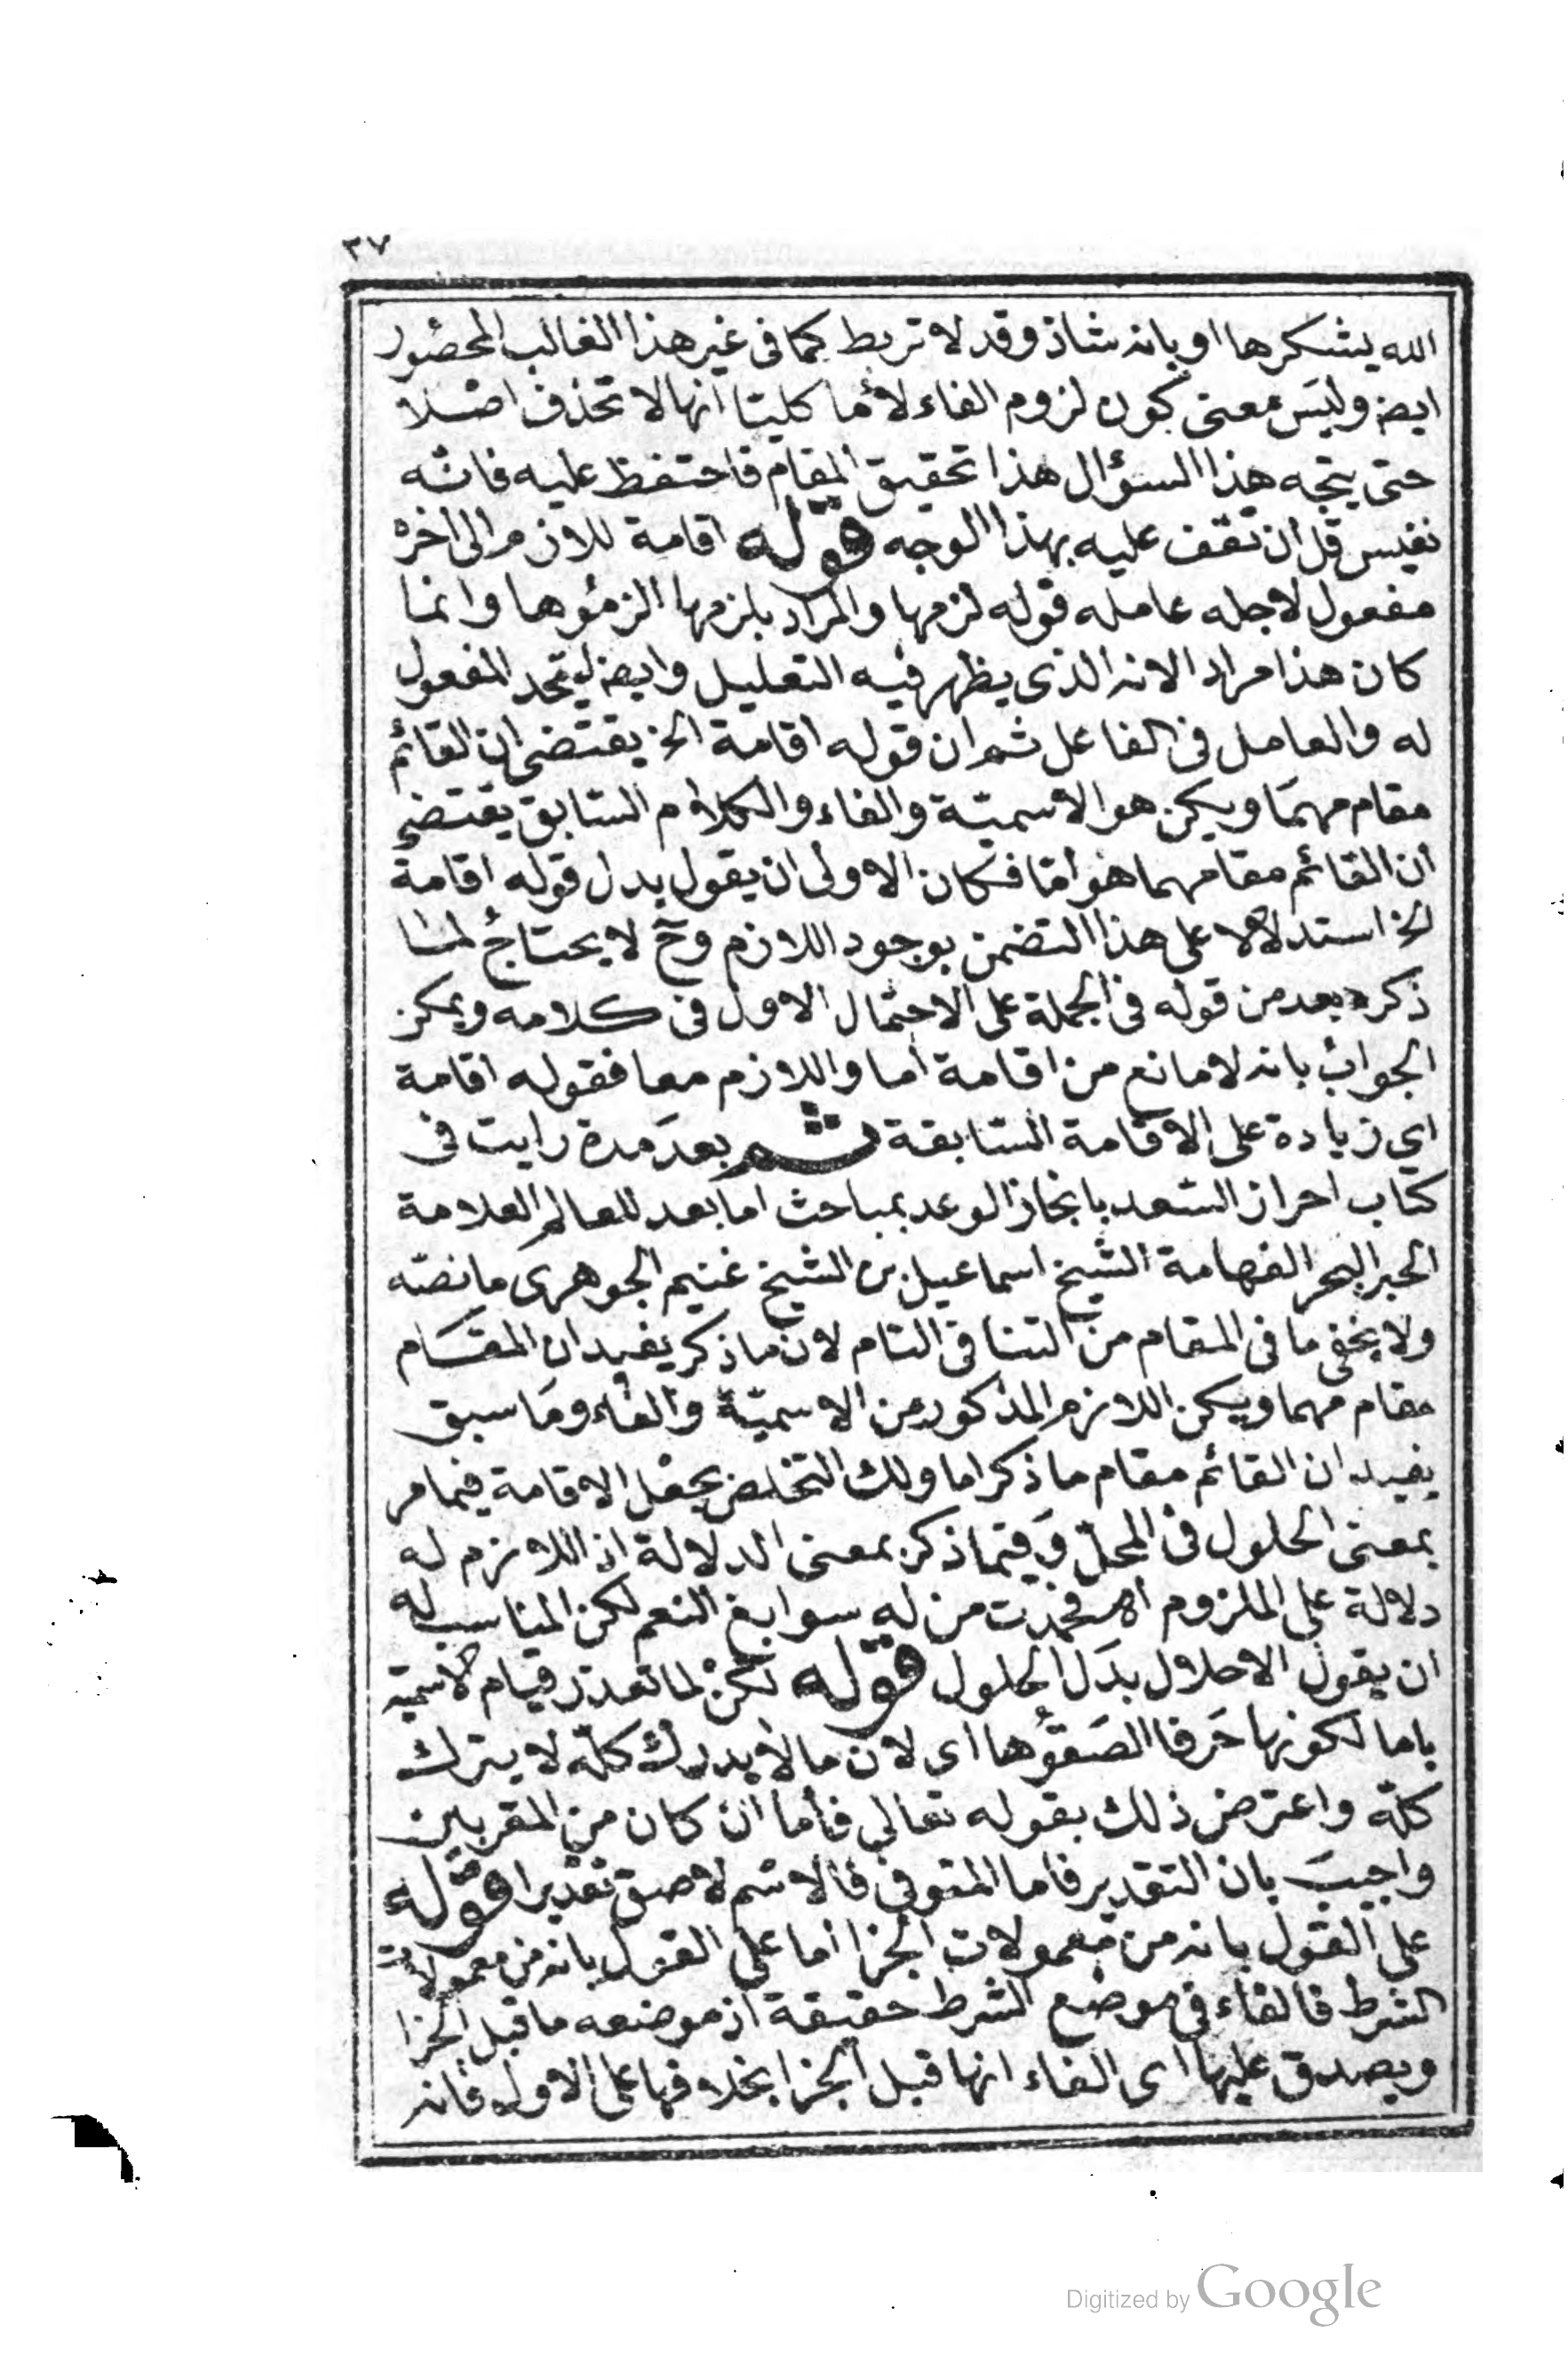 ٣٧
الله يشكرها او بانه شاذ وقد لا تربط كما فى غير هذا الغالب المحصور
ايضه وليس معنى كون لزوم الفاء لأما كليتا انها لا تحذف اصلا
حتى يتجه هذا السؤال هذا تحقيق المقام فاحتفظ عليه فانه
نفيس قل ان تقف عليه بهذا الوجه قوله اقامة للازم الى اخره
مفعول لاجله عامله قوله لزمها والمراد بلزمها الزموها وانما
كان هذا مرادا لانه الذى يظهر فيه التعليل وايضه ليتحد المفعول
له والعامل فى الفاعل ثم ان قوله اقامة الخ يقتضى ان القائم
مقام مهما ويكن هو الاسمية والفاء والكلام السابق يقتضى
ان القائم مقامهما هو أما فكان الاولى ان يقول بدل قوله اقامة
الخ استدلالا على هذا التضمن بوجود اللازم وح لا يحتاج لما
ذكره بعد من قوله فى الجملة على الاحتمال الاول فى كلامه ويمكن
الجواب بانه لا مانع من اقامة أما واللازم معا فقوله اقامة
اي زيادة على الاقامة السابقة ثم بعد مدة رايت فى
كتاب احراز السعد بانجاز الوعد بمباحث اما بعد للعالم العلامة
الحبر البحر الفهامة الشيخ اسماعيل بن الشيخ غنيم الجوهرى ما نصه
ولا يخفى ما فى المقام من التنافى التام لان ما ذكر يفيد ان المقام
مقام مهما ويكن اللازم المذكور من الاسمية والفاء وما سبق
يفيد ان القائم مقام ما ذكر اما ولك التخلص بجعل الاقامة فيما مر
بمعنى الحلول فى المحل وفيما ذكر بمعنى الدلالة اذ اللازم له
دلالة على الملزوم اهـ فحمدت من له سوابغ النعم لكن المناسب له
ان يقول الاحلال بدل الحلول قوله لكن لما تعذر قيام الاسمية
باما لكونها حرفا الصقوها اى لان ما لا يدرك كله لا يترك
كله واعترض ذلك بقوله تعالى فأما ان كان من المقربين
واجيب بان التقدير فاما المتوفى فالاسم لاصق تقديرا قوله
على القول بانه من معمولات الجزا أما على القول بانه من معمولات
الشرط فالفاء فى موضع الشرط حقيقة اذ موضعه ما قبل الجزا
ويصدق عليها اى الفاء انها قبل الجزا بخلافها على الاول فانه
Digitized by Google